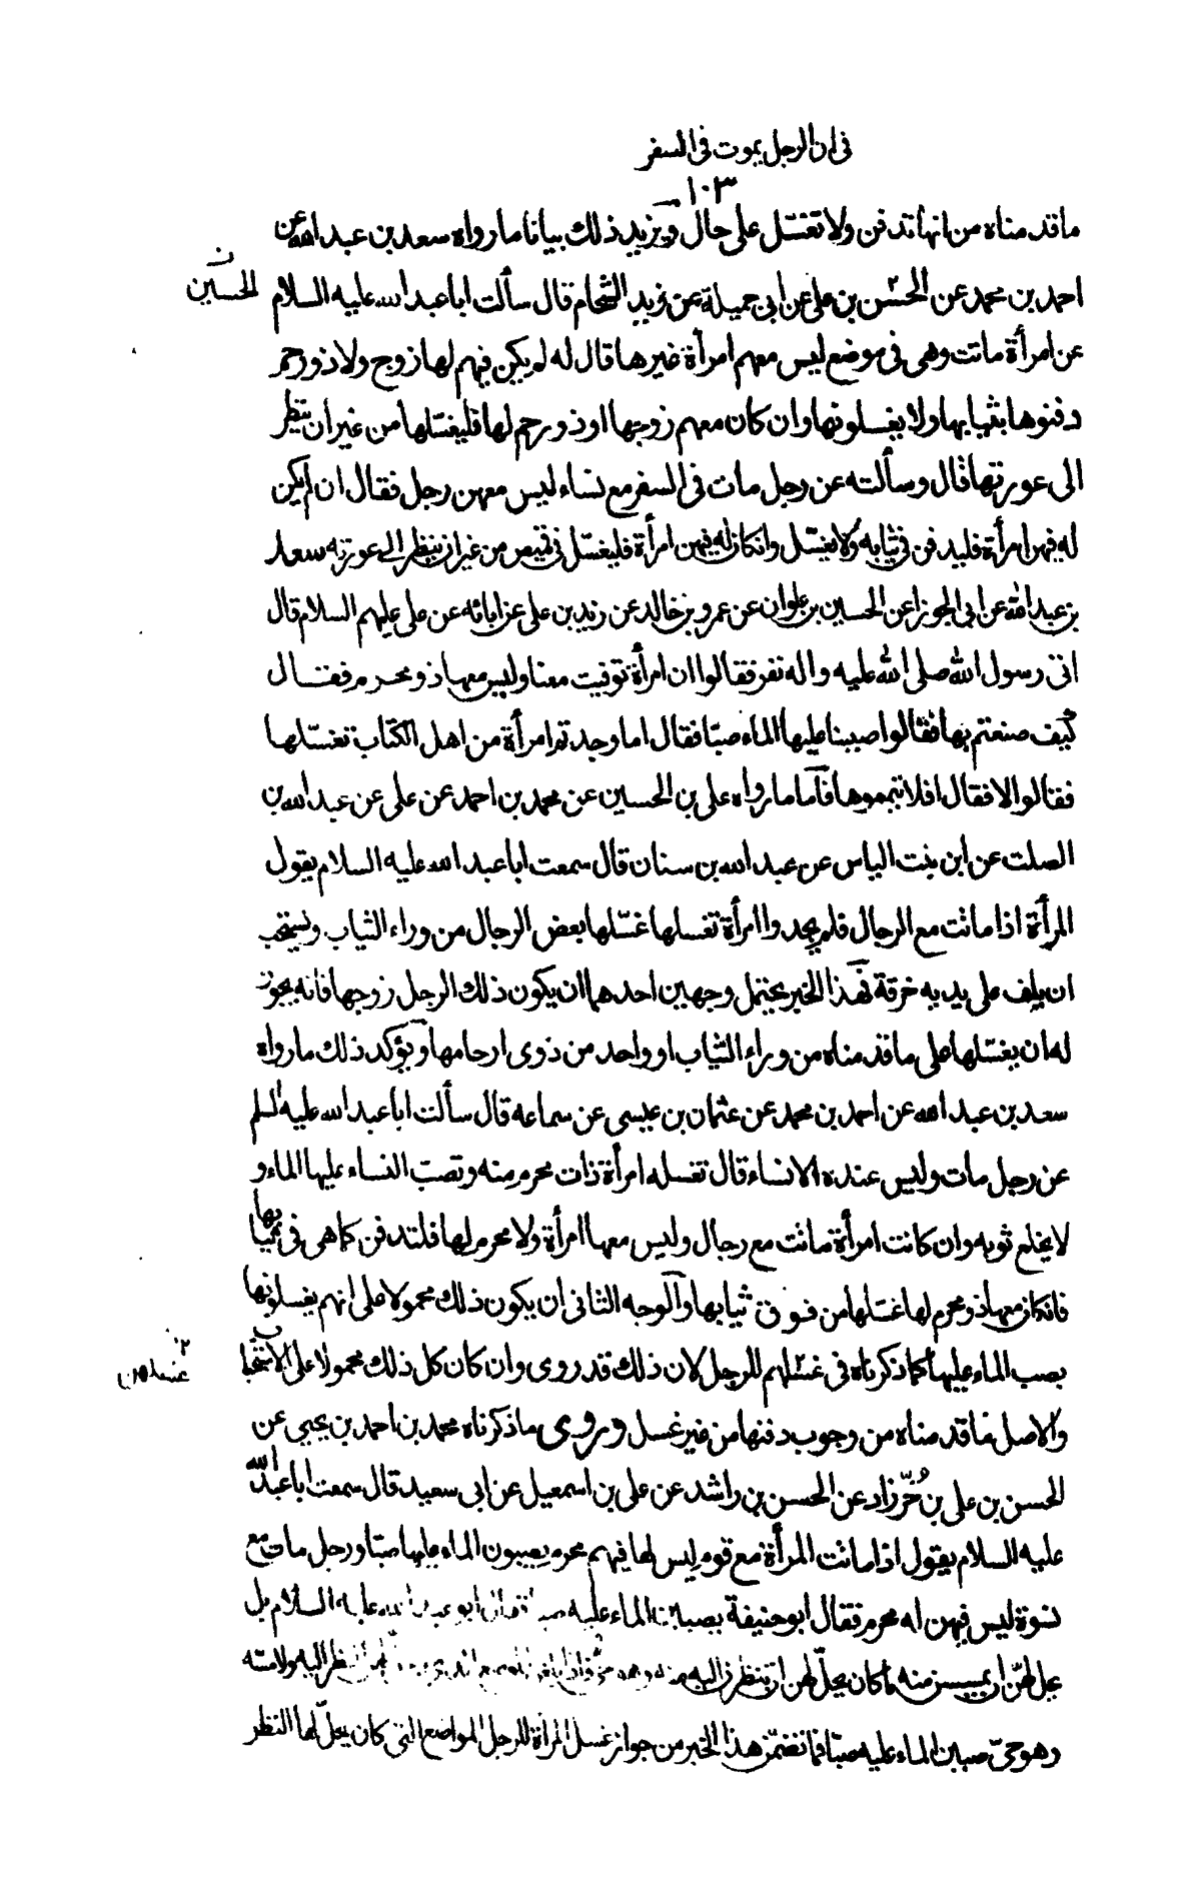 فى ان الرجل يموت فى السفر
١٠٣
ما قدمناه من انها تدفن ولا تغسّل على حال ويزيد ذلك بيانا ما رواه سعد بن عبد الله عن
احمد بن محمد عن الحسن بن على عن ابى جميلة عن زيد الشحام قال سألت ابا عبد الله عليه السلام
الحسين
عن امرأة ماتت وهى فى موضع ليس معهم امرأة غيرها قال له لم يكن فيهم لها زوج ولا ذو رحم
دفنوها بثيابها ولا يغسلونها وان كان معهم زوجها او ذو رحم لها فليغسّلها من غير ان ينظر
الى عورتها قال وسألته عن رجل مات فى السفر مع نساء ليس معهن رجل فقال ان لم يكن
له فيهن امرأة فليدفن فى ثيابه ولا يغسّل وان كان له فيهن امرأة فليغسّل فى قميص من غير ان ينظر الى عورته سعد
بن عبد الله عن ابى الجوزا عن الحسين بن علوان عن عمرو بن خالد عن زيد بن على عن ابائه عن على عليهم السلام قال
اتى رسول الله صلى الله عليه واله نفر فقالوا ان امرأة توفيت معنا وليس معها ذو محرم فقال
كيف صنعتم بها فقالوا صببنا عليها الماء صبّا فقال اما وجدتم امرأة من اهل الكتاب تغسّلها
فقالوا لا فقال افلا تيمموها فآما ما رواه على بن الحسين عن محمد بن احمد عن على عن عبد الله بن
الصلت عن ابن بنت الياس عن عبد الله بن سنان قال سمعت ابا عبد الله عليه السلام يقول
المرأة اذا ماتت مع الرجال فلم يجدوا امرأة تغسلها غسّلها بعض الرجال من وراء الثياب ويستحب
ان يلف على يديه خرقة فهذا الخبر يحتمل وجهين احدهما ان يكون ذلك الرجل زوجها فانه يجوز
له ان يغسّلها على ما قدمناه من وراء الثياب او واحد من ذوى ارحامها ويؤكد ذلك ما رواه
سعد بن عبد الله عن احمد بن محمد عن عثمان بن عيسى عن سماعه قال سألت ابا عبد الله عليه السلم
عن رجل مات وليس عنده الا نساء قال تغسله امرأة ذات محرم منه وتصبّ النساء عليها الماء و
لا يخلع ثوبه وان كانت امرأة ماتت مع رجال وليس معها امرأة ولا محرم لها فلتدفن كما هى فى ثيابها
فان كان معها ذو محرم لها غسّلها من فوق ثيابها والوجه الثانى ان يكون ذلك محمولا على انهم يغسلونها
بصب الماء عليها كما ذكرناه فى غسّلهم للرجل لان ذلك قد روى وان كان كل ذلك محمولا على الاستحباب
والاصل ما قدمناه من وجوب دفنها من غير غسل وروى ما ذكرناه محمد بن احمد بن يحيى عن
الحسن بن على بن خُرّزاد عن الحسن بن راشد عن على بن اسمعيل عن ابى سعيد قال سمعت ابا عبد الله
عليه السلام يقول اذا ماتت المرأة مع قوم ليس لها فيهم محرم يصبون الماء عليها صبّا ورجل مات مع
نسوة ليس فيهن له محرم فقال ابو حنيفة يصببن الماء عليه صبا فقال ابو عبد الله عليه السلام بل
يحل لهنّ ان يمسسن منه ما كان يحلّ لهن ان ينظرن اليه منه وهو حىّ فاذا النظر اليه ولا مسّه
وهو حىّ صببن الماء عليه صبّا فما تضمّن هذا الخبر من جواز غسل المرأة للرجل المواضع التى كان يحلّ لها النظر